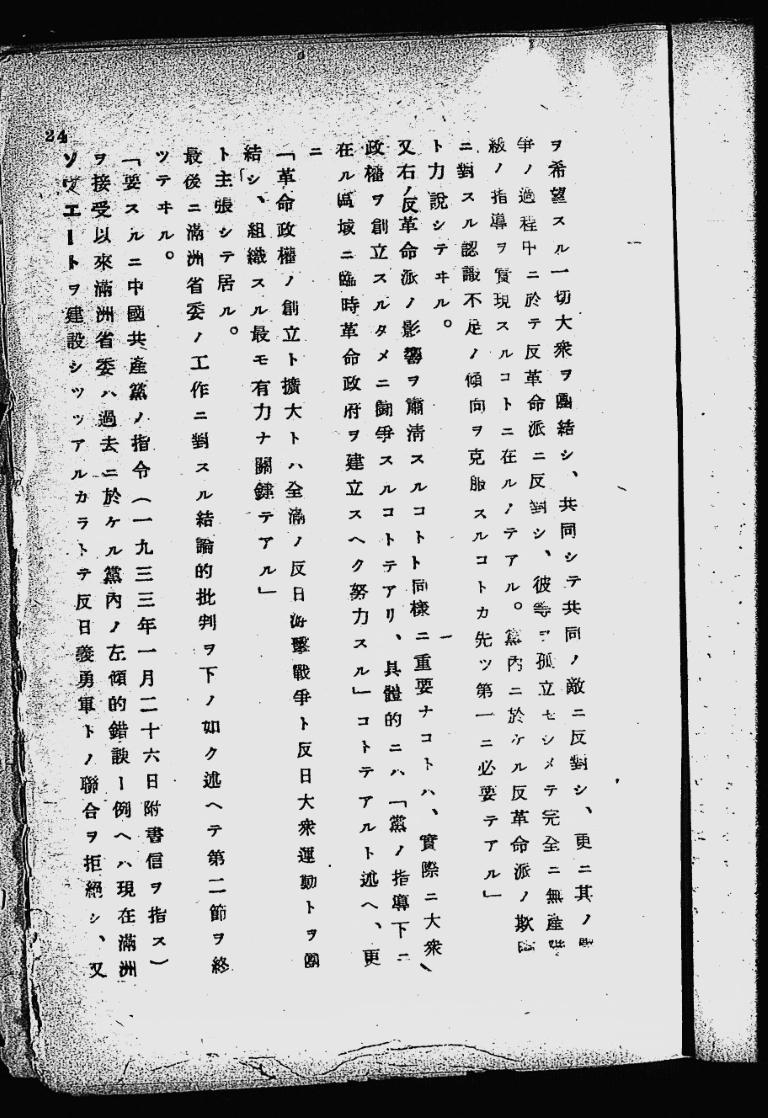 ヲ希望スル一切大衆ヲ團結シ、共同シテ共同ノ敵ニ反對シ、更ニ其ノ
爭ノ過程中ニ於テ反革命派ニ反對シ、彼等ヲ孤立セシメテ完全ニ無産
級ノ指導ヲ實現スルコトニ在ルノテアル。黨内ニ於ケル反革命派ノ欺
ニ對スル認識不足ノ傾向ヲ克服スルコトカ先ツ第一ニ必要テアル」
ト力説シテヰル。
又右ノ反革命派ノ影響ヲ肅清スルコトト同樣ニ重要ナコトハ、實際ニ大衆
政權ヲ創立スルタメニ鬪爭スルコトテアリ、具體的ニハ「黨ノ指導下ニ
在ル區域ニ臨時革命政府ヲ建立スヘク努力スル」コトテアルト述ヘ、更
ニ
「革命政權ノ創立ト擴大トハ全滿ノ反日游擊戰爭ト反日大衆運動トヲ團
結シ、組織スル最モ有力ナ關鍵テアル」
ト主張シテ居ル。
最後ニ滿洲省委ノ工作ニ對スル結論的批判ヲ下ノ如ク述ヘテ第二節ヲ終
ツテヰル。
「要スルニ中國共産黨ノ指令(一九三三年一月二十六日附書信ヲ指ス)
ヲ接受以來滿洲省委ハ過去ニ於ケル黨内ノ左傾的錯誤ー例ヘハ現在滿洲
ソヴエートヲ建設シツツアルカラトテ反日義勇軍トノ聯合ヲ拒絕シ、又
24